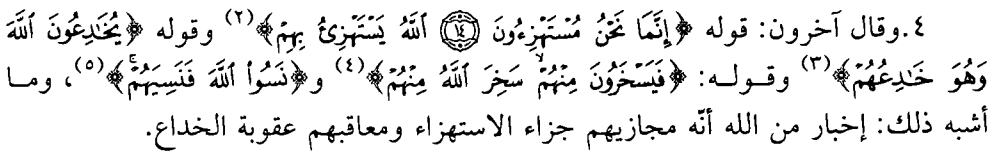 ٤. وقال آخرون: قوله ﴿إِنَّمَا نَحْنُ مُسْتَهْزِءُونَ ۝١٤ ٱللَّهُ يَسْتَهْزِئُ بِهِمْ﴾(٢) وقوله ﴿يُخَـٰدِعُونَ ٱللَّهَ
وَهُوَ خَـٰدِعُهُمْ﴾(٣) وقـولـه: ﴿فَيَسْخَرُونَ مِنْهُمْ ۙ سَخِرَ ٱللَّهُ مِنْهُمْ﴾(٤) و﴿نَسُواْ ٱللَّهَ فَنَسِيَهُمْ ۗ﴾(٥)، ومـا
أشبه ذلك: إخبار من الله أنّه مجازيهم جزاء الاستهزاء ومعاقبهم عقوبة الخداع.